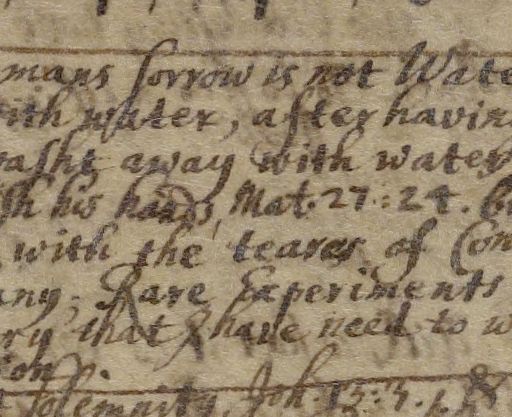 mans sorrow is not Wate
ith water, after havin
washt away with water
sh his hands, Mat. 27: 24.
with the teares of Con
any; Rare Experiments
ry that I have need to w
ion
Solemnity, Joh. 13: 3.